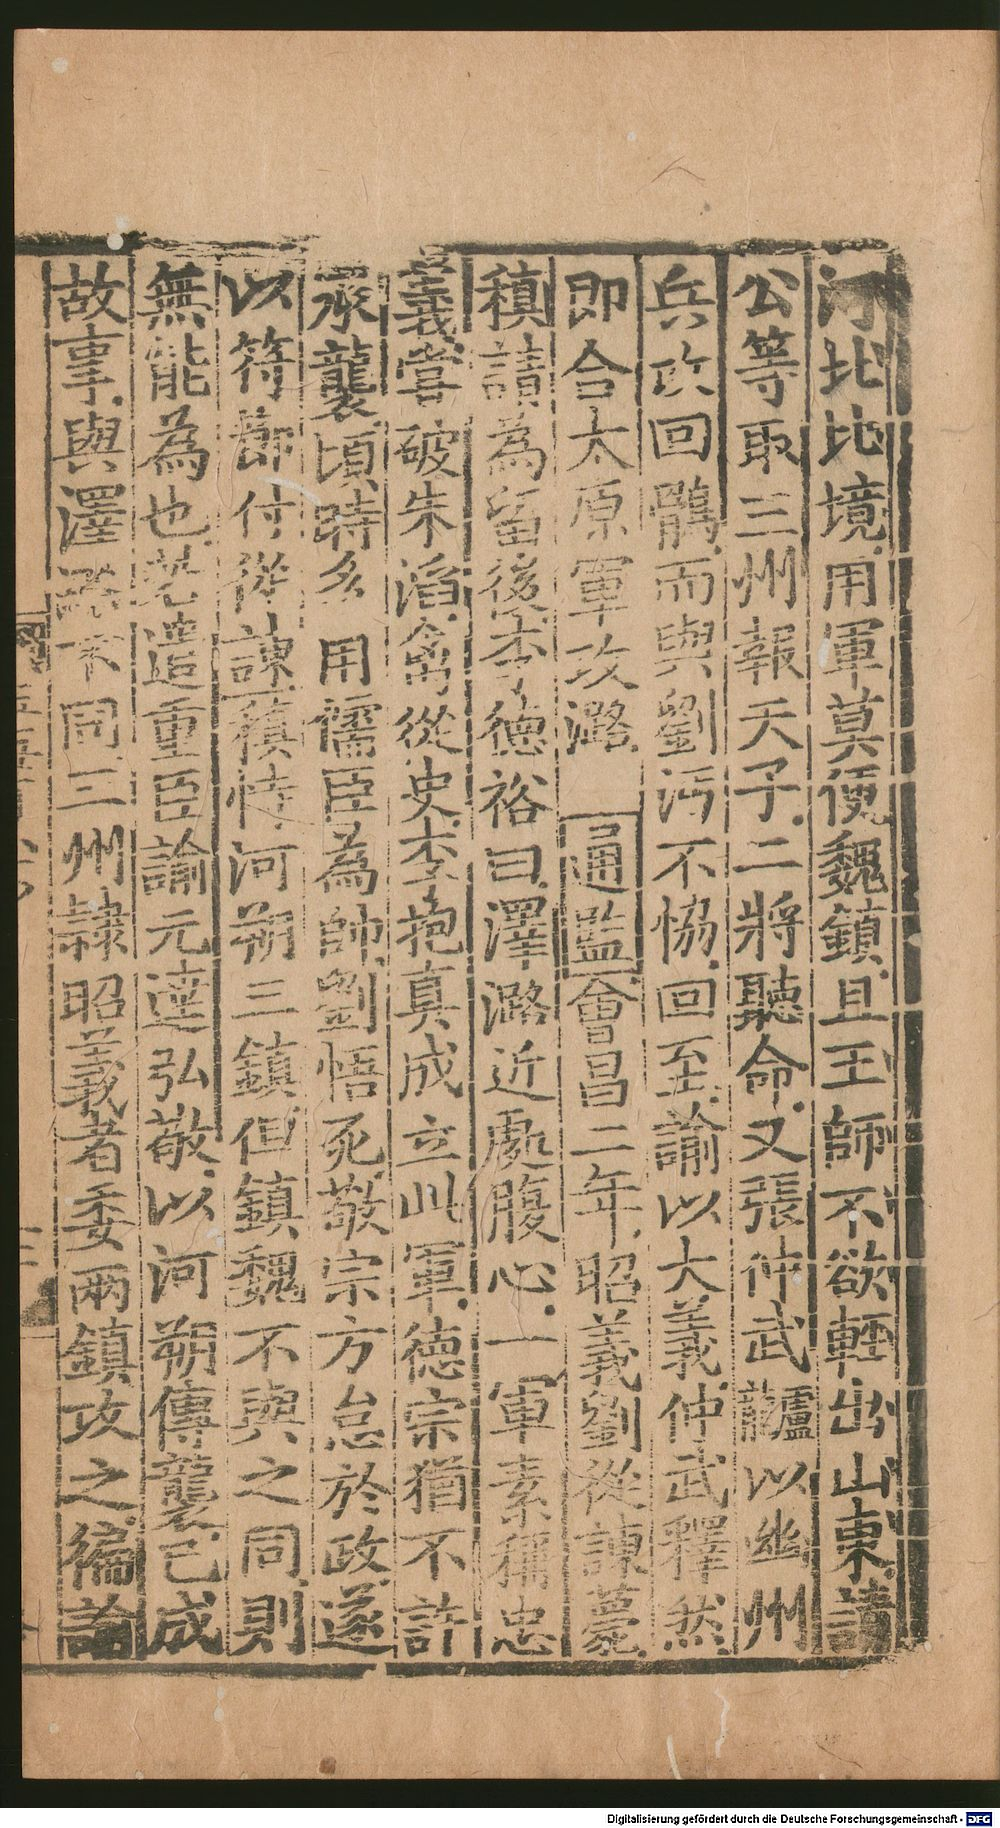 河北比境用軍莫便魏鎮且王師不欲輕出山東請
公等取三州報天子二將聽命又張仲武以幽州
兵攻回鶻而與劉沔不恊回至諭以大義仲武釋然
即合太原軍攻潞 通監會昌二年昭義劉從諫薨
稹請為留後李德裕曰澤潞近處腹心一軍素稱忠
義嘗破朱滔禽從史李抱真成立此軍德宗猶不許
承襲頃時多用儒臣為帥劉悟死敬宗方怠於政遂
以符節付從諫稹恃河朔三鎮但鎮魏不與之同則
無能為也若造重臣諭元逵弘敬以河朔傳襲已成
故事與澤潞不同三州隸昭義者委兩鎮攻之編諭
Digitalisierung gefördert durch die Deutsche Forschungsgemeinschaft - DFG